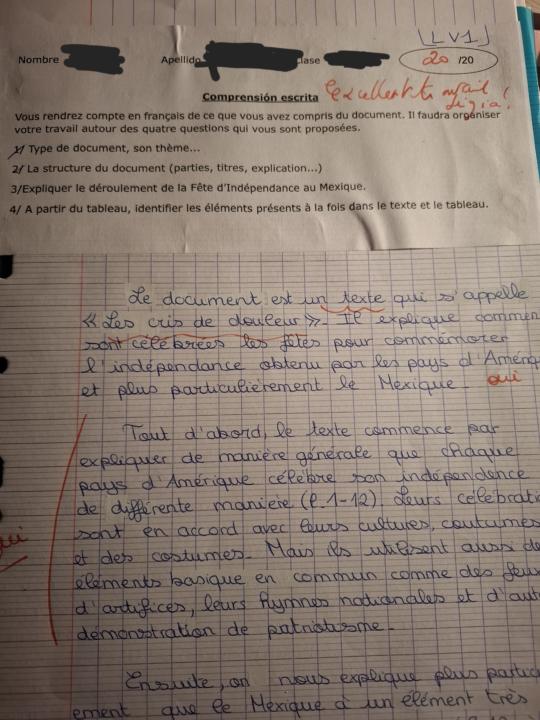 [LV1]
Nombre Apellido lase 20 /20
Comprensión escrita Excellent travail
Vous rendrez compte en français de ce que vous avez compris du document. Il faudra organiser
votre travail autour des quatre questions qui vous sont proposées.
1/ Type de document, son thème...
2/ La structure du document (parties, titres, explication...)
3/Expliquer le déroulement de la Fête d'Indépendance au Mexique.
4/ A partir du tableau, identifier les éléments présents à la fois dans le texte et le tableau.
Le document est un texte qui s'appelle
« Les cris de douleur ». Il explique commen
sont célébrées les fêtes pour commémorer
l'indépendance obtenu par les pays d'Amériq
et plus particulièrement le Mexique. oui
Tout d'abord, le texte commence par
expliquer de manière générale que chaque
pays d'Amérique célèbre son indépendence
de différente manière (l.1-12). Leurs célébrati
sont en accord avec leurs cultures, coutumes
et des costumes. Mais ils utilisent aussi de
éléments basique en commun comme des feux
d'artifices, leurs hymnes nationales et d'aut
démonstration de patriotisme.
Ensuite, on nous explique plus partic
ement que le Mexique à un élément très